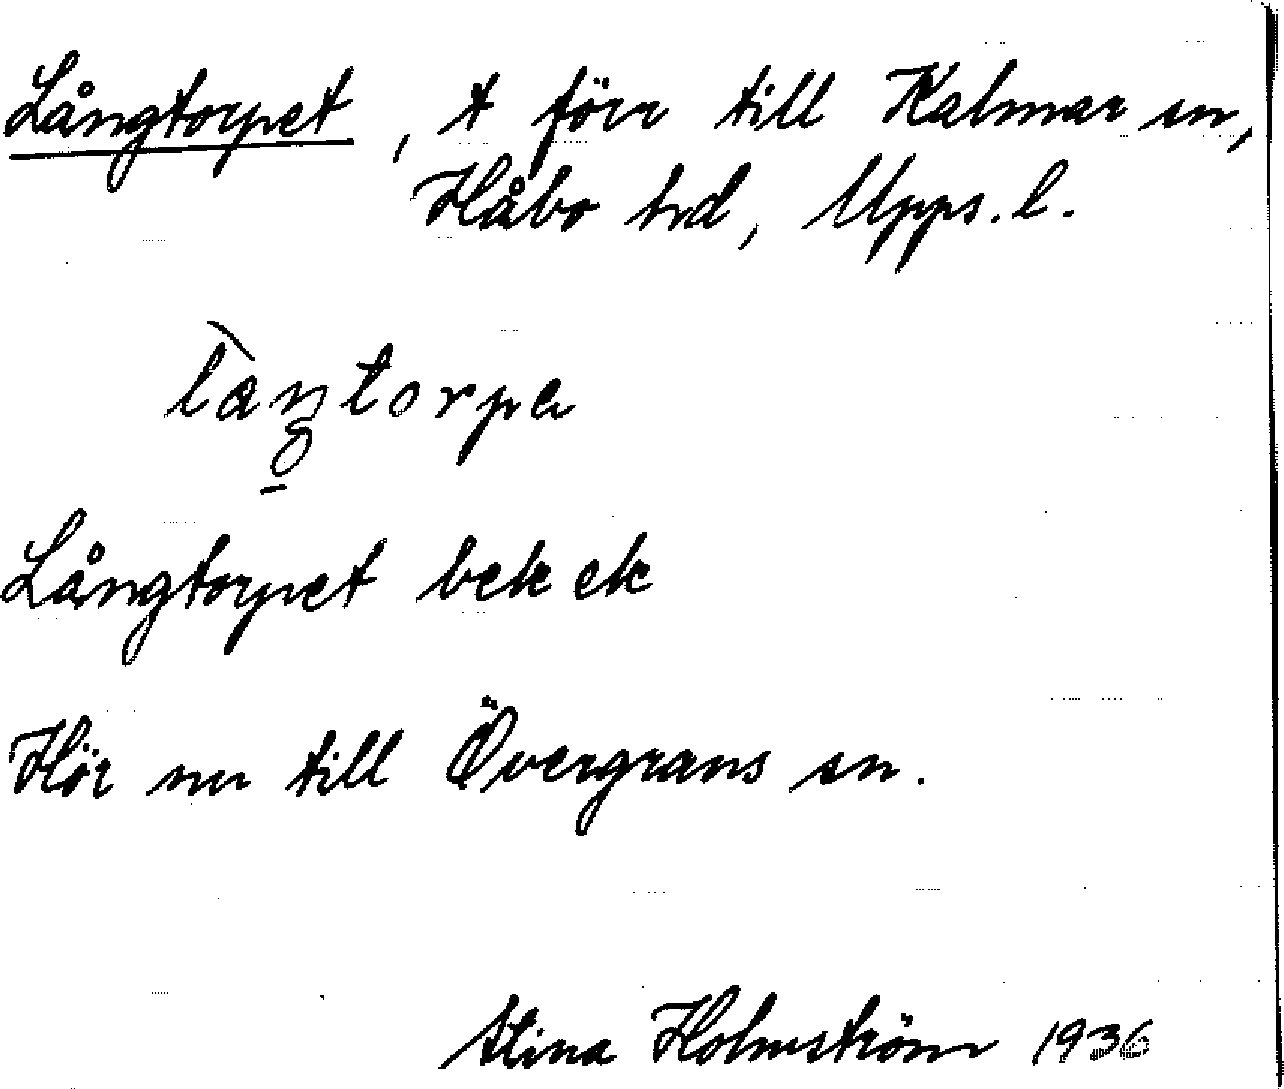 Långtorpet, t förr till Kalmar sn,
Håbo hd, Upps. l.
Långtorpet bek ek
Hör nu till Övergrans sn.
Stina Holmström 1936